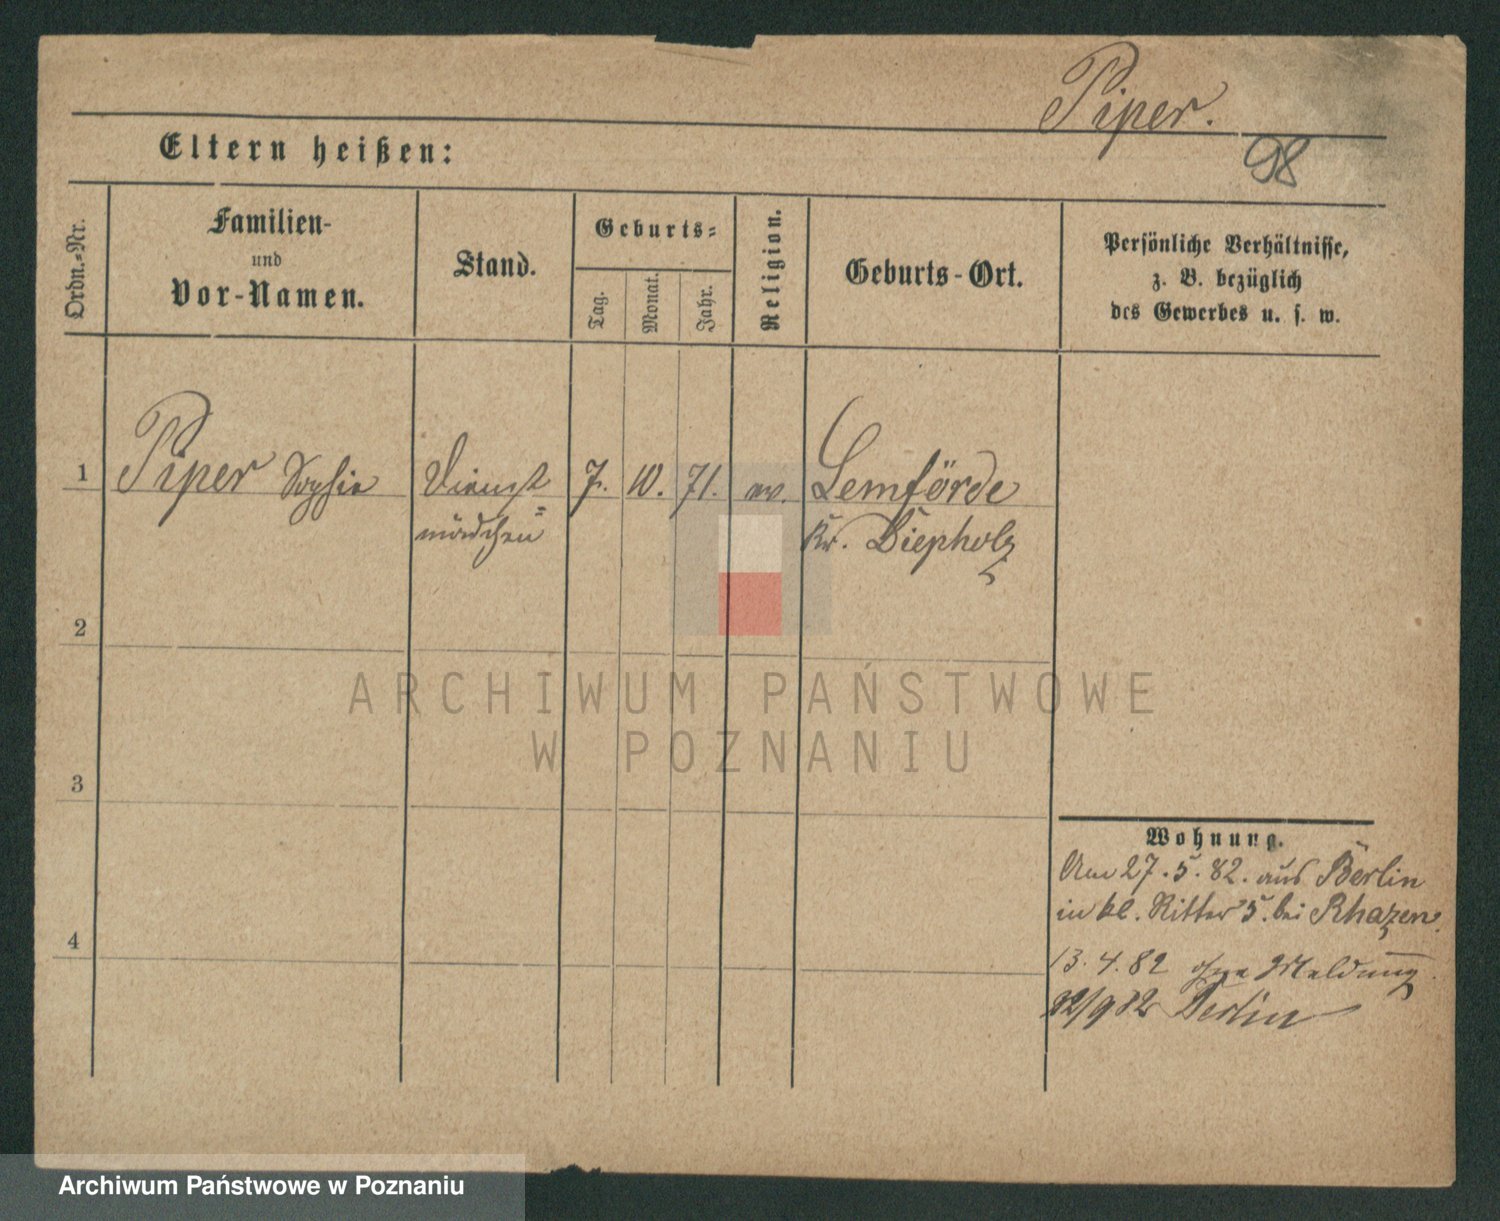 Piper.
98
Eltern heißen:
Ordn.-Nr.
Familien-
und
Vor-Namen.
Stand.
Geburts-
Tag.
Monat.
Jahr.
Religion.
Geburts-Ort.
Persönliche Verhältnisse,
z. B. bezüglich
des Gewerbes u. s. w.
1 Piper Sophie Dienst= 7. 10. 71. ev. Lemförde
mädchen Kr. Diepholz
2
3
4
Wohnung.
Am 27.5.82. aus Berlin
in kl. Ritter 5. bei Rhazen.
13.4.82 ohne Meldung.
22/9 82 Berlin
ARCHIWUM PAŃSTWOWE
W POZNANIU
Archiwum Państwowe w Poznaniu